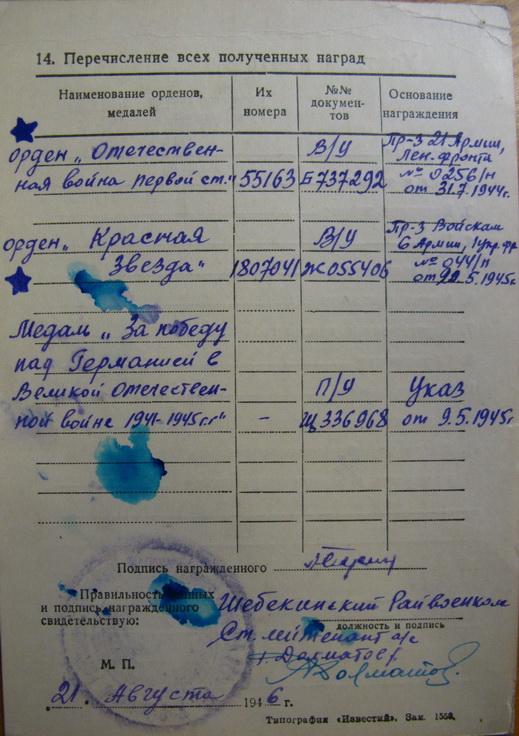 14. Перечисление всех полученных наград
Наименование орденов, медалей
Их номера
№№ докумен-тов
Основание награждения
орден „Отечествен-
В/У
Пр-з 21 Армии,
Лен. фронта
ная война первой ст."
55163
Б 737292
№ 0256/н
от 31.7.1944г.
орден „ Красная
В/У
Пр-з Войскам
6 Армии, 1 Укр. фр
Звезда"
1807041
Ж 055406
№ 044/н
.5.1945г
Медаль „За победу
над Германией в
Великой отечествен-
П/У
Указ
ной войне 1941-1945г.г"
-
Щ 336968
от 9.5.1945г.
Подпись награжденного
Правильность данных
и подпись награжденного
свидетельствую:
Шебекинский Райвоенком
должность и подпись
Ст. лейтенант а/с
Долматов
М. П.
21. Августа 1946 г.
Типография «Известий». Зак.